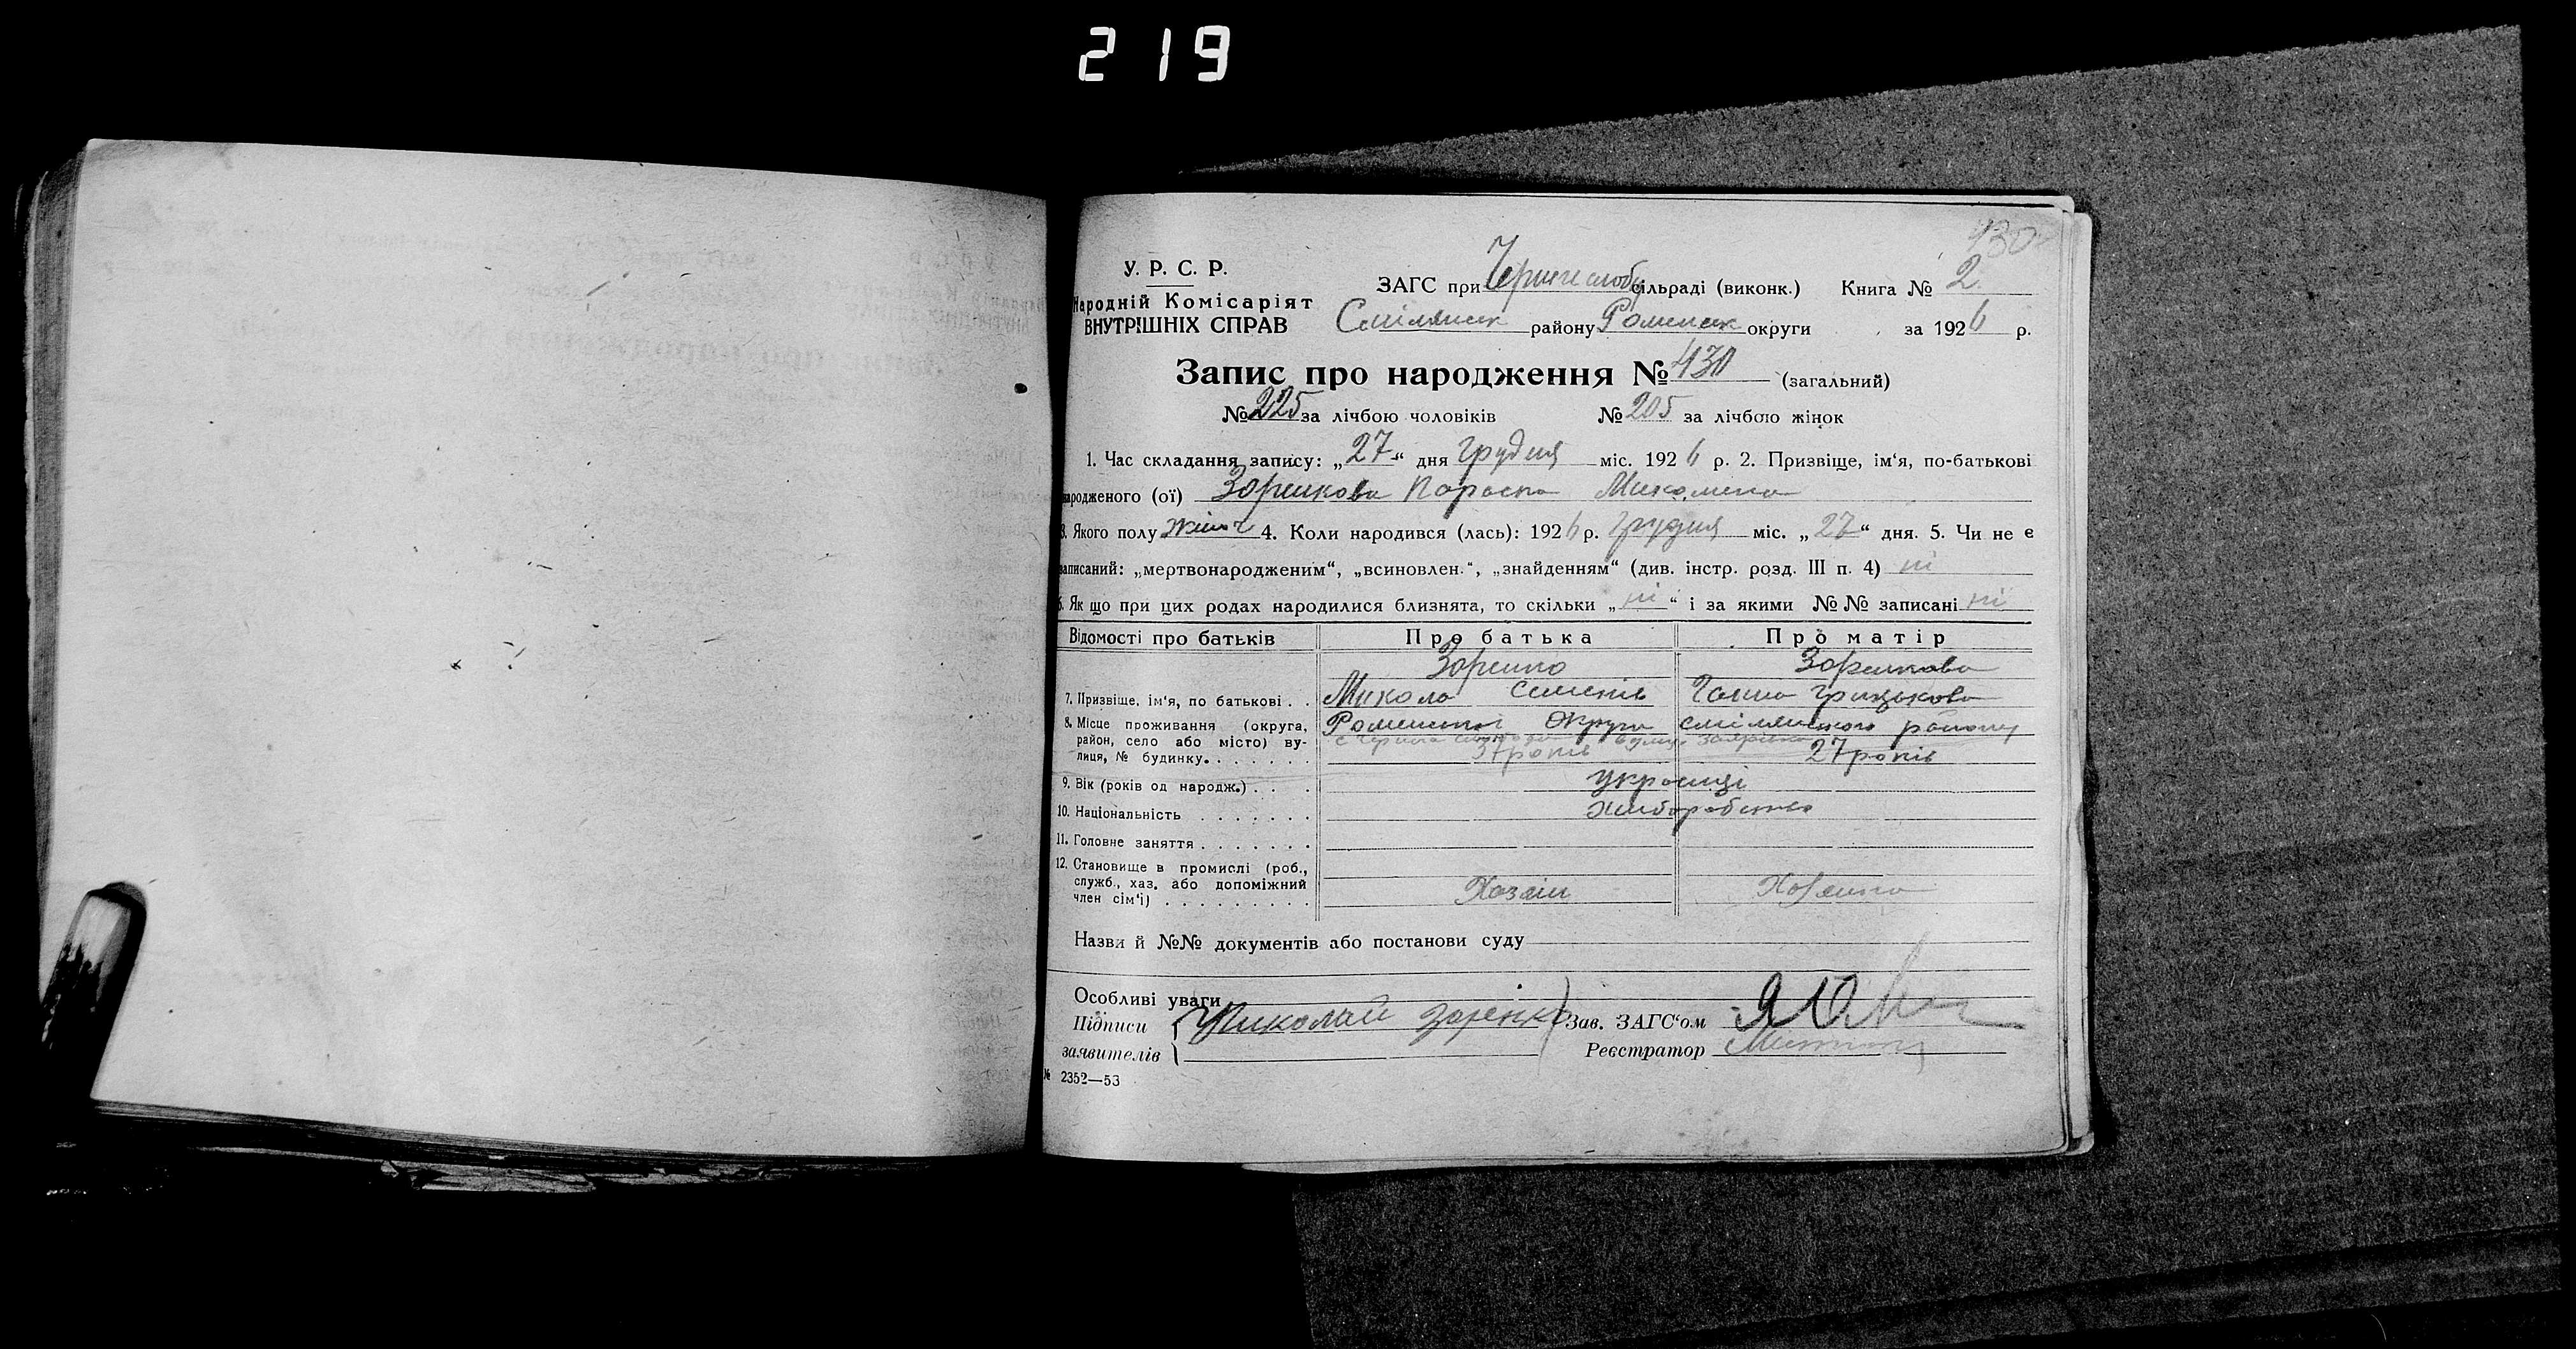 219
430
У. Р. С. Р.
Народній Комісаріят
ВНУТРІШНІХ СПРАВ
ЗАГС при сільраді (виконк.) Книга № 2
Смілянськ району Роменськ округи за 1926 р.
Запис про народження № 430 (загальний)
№ 225 за лічбою чоловіків № 205 за лічбою жінок
1. Час складання запису: „27“ дня грудня міс. 1926 р. 2. Призвіще, ім‘я, по-батькові
народженого (ої) Зоренкова Параска
3. Якого полу жіноч 4. Коли народився (лась): 1926 р. грудня міс. „27“ дня. 5. Чи не є
записаний: „мертвонародженим“, „всиновлен.“, „знайденням“ (див. інстр. розд. III п. 4) ні
6. Як що при цих родах народилися близнята, то скільки „ні“ і за якими №№ записані ні
Відомості про батьків Про батька Про матір
Зоренко Зоренкова
7. Призвіще, ім‘я, по батькові . . Микола Семенів Ганна Грицькова
8. Місце проживання (округа, район, село або місто) вулиця, № будинку. Роменської Округи смілянського району
37 років 27 років
9. Вік (років од народж.) . . . Українці
10. Національність . . . . . . . Хліборобство
11. Головне заняття . . . . . . .
12. Становище в промислі (роб.,
служб., хаз. або допоміжний
член сім‘ї) . . . . . . . . . Хазяїн Хазяйка
Назви й №№ документів або постанови суду
Особливі уваги
Підписи Николай Зоренко Зав. ЗАГС‘ом
заявителів Реєстратор
№ 2352—53